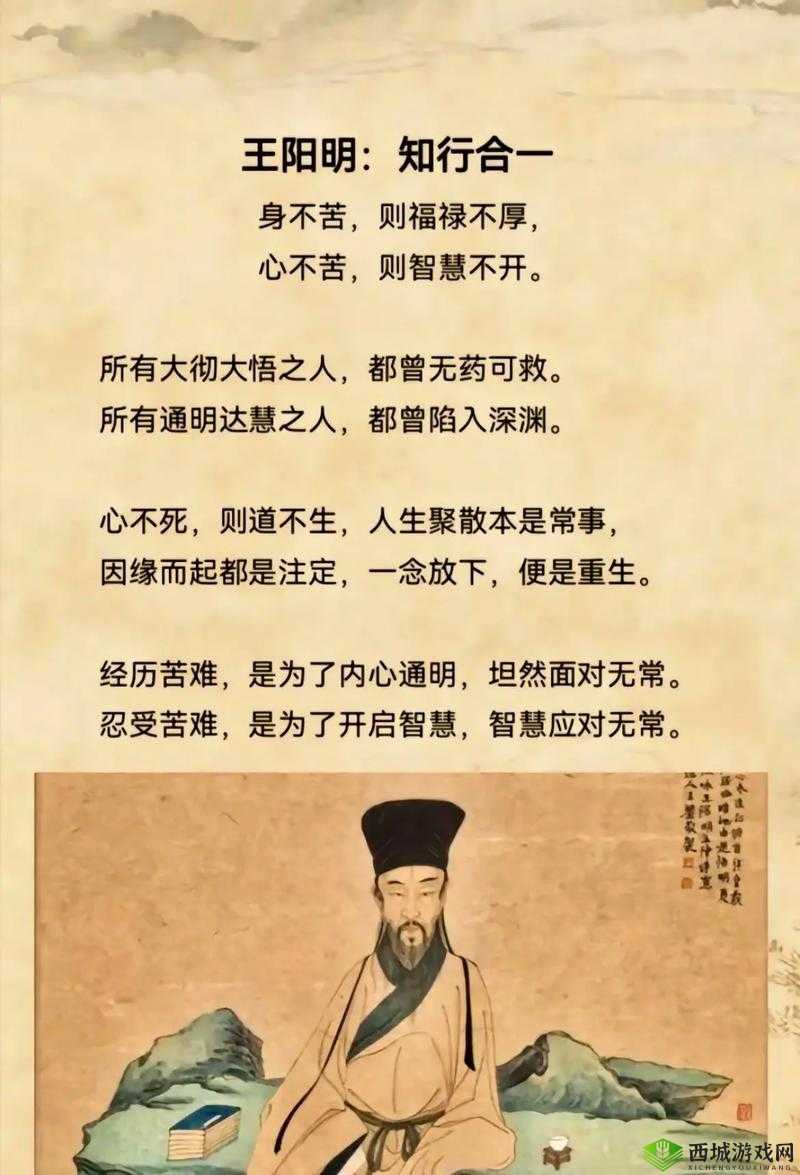 王阳明：知行合一
身不苦，则福禄不厚，
心不苦，则智慧不开。
所有大彻大悟之人，都曾无药可救。
所有通明达慧之人，都曾陷入深渊。
心不死，则道不生，人生聚散本是常事，
因缘而起都是注定，一念放下，便是重生。
经历苦难，是为了内心通明，坦然面对无常。
忍受苦难，是为了开启智慧，智慧应对无常。
西城游戏网
XICHENGYOUXIWANG